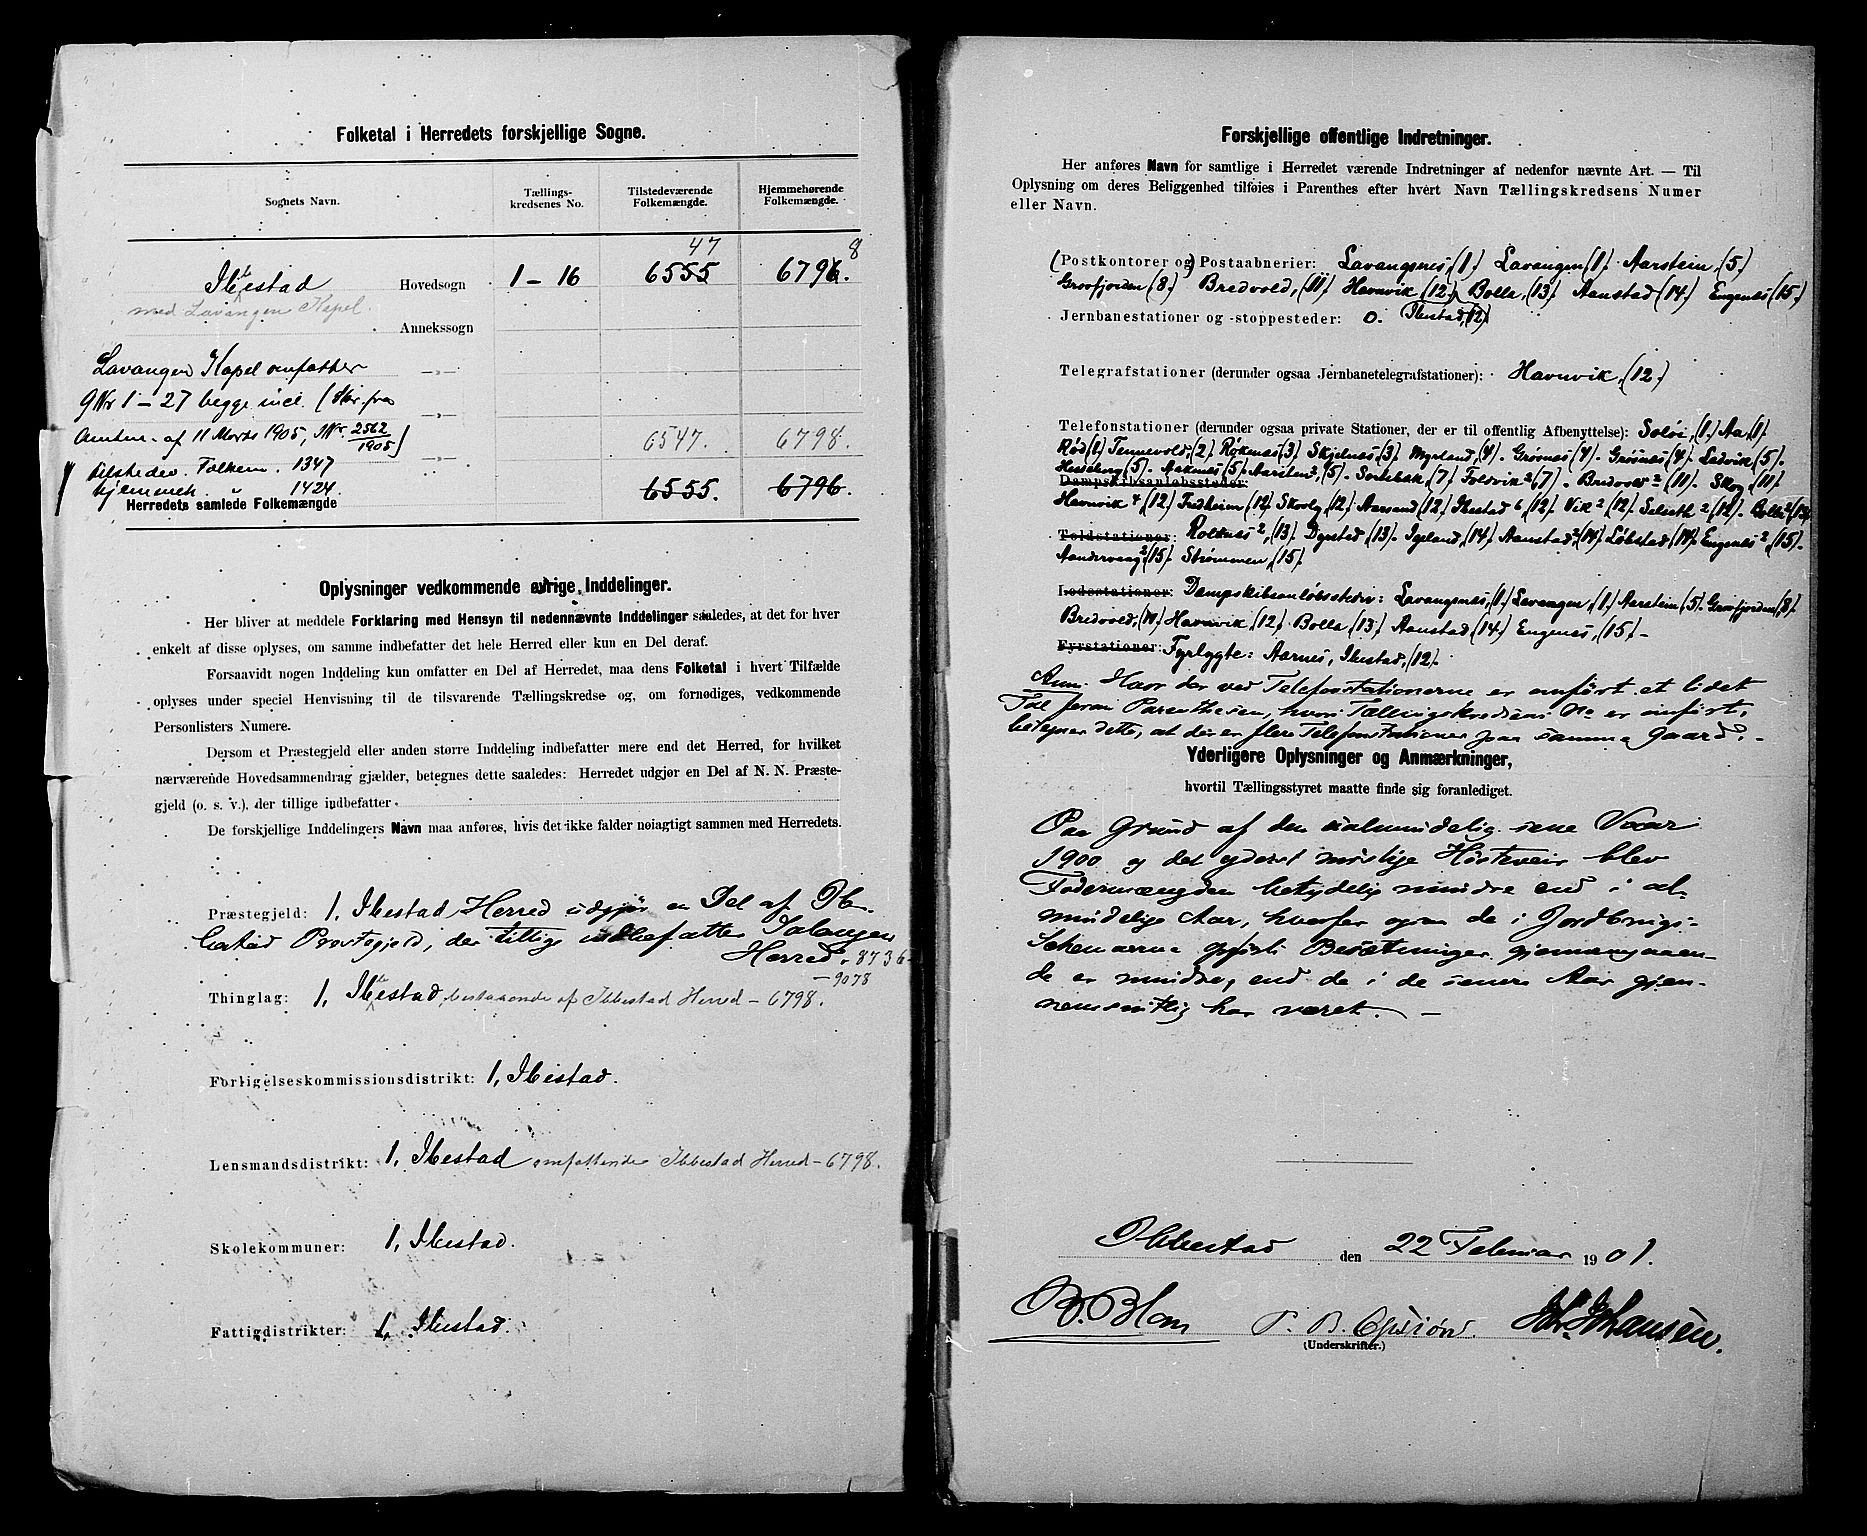 Folketal i Herredets forskjellige Sogne.
Sognets Navn.
Tællings-
kredsenes No.
Tilstedeværende
Folkemængde.
Hjemmehørende
Folkemængde.
47 8
Ibestad Hovedsogn 1 - 16 6555 6796.
med Lavangen Kapel.
Annekssogn
Lavangen Kapel omfatter -„-
GNr 1 - 27 begge incl. (Skr. fra -„-
Amtm. af 11 Marts 1905, JNr. 2562/1905) 6547. 6798.
tilstedev. Folkem. 1347
hjemmeh. " 1424. 6555. 6796.
Herredets samlede Folkemængde
Oplysninger vedkommende øvrige Inddelinger.
Her bliver at meddele Forklaring med Hensyn til nedennævnte Inddelinger saaledes, at det for hver
enkelt af disse oplyses, om samme indbefatter det hele Herred eller kun en Del deraf.
Forsaavidt nogen Inddeling kun omfatter en Del af Herredet, maa dens Folketal i hvert Tilfælde
oplyses under speciel Henvisning til de tilsvarende Tællingskredse og, om fornødiges, vedkommende
Personlisters Numere.
Dersom et Præstegjeld eller anden større Inddeling indbefatter mere end det Herred, for hvilket
nærværende Hovedsammendrag gjælder, betegnes dette saaledes: Herredet udgjør en Del af N. N. Præste-
gjeld (o. s. v.), der tillige indbefatter
De forskjellige Inddelingers Navn maa anføres, hvis det ikke falder nøiagtigt sammen med Herredets.
Præstegjeld: 1, Ibestad Herred udgjør en Del af Ib-
bestad Præstegjeld, der tillige indbefatter Salangen
Herred - 8736
- 9078
Thinglag: 1, Ibestad, bestaaende af Ibbestad Herred - 6798.
Forligelseskommissionsdistrikt: 1, Ibestad.
Lensmandsdistrikt: 1, Ibestad omfattende Ibbestad Herred - 6798.
Skolekommuner: 1, Ibestad.
Fattigdistrikter: 1, Ibestad.
Forskjellige offentlige Indretninger.
Her anføres Navn for samtlige i Herredet værende Indretninger af nedenfor nævnte Art. — Til
Oplysning om deres Beliggenhed tilføies i Parenthes efter hvert Navn Tællingskredsens Numer
eller Navn.
(Postkontorer og) Postaabnerier: Lavangsnes, (1). Lavangen (1). Aarstein, (5).
Grovfjorden (8). Bredvold, (11). Havnvik (12). Bolla, (13). Aanstad (14). Engenes (15.)
Jernbanestationer og -stoppesteder: 0. Ibestad, (12).
Telegrafstationer (derunder ogsaa Jernbanetelegrafstationer): Havnvik, (12.)
Telefonstationer (derunder ogsaa private Stationer, der er til offentlig Afbenyttelse): Soløi, (1). Aa, (1).
Rød (1). Tennevold, (2). Røkenes (3). Skjelnes, (3). Myrland, (4). Grønnes (4). Ladvik (5).
Hesseberg (5). Aaknes (5). Aarstend, (5). Sortebak, (7). Foldvik 2 (7). Bredvold 2 (11). Skog, (11).
Dampskibsanløbssteder:
Havnvik 4, (12). Fredheim (12). Skovly, (12). Aarsand (12). Ibestad 6, (12). Vik 2 (12). Selseth 2 (12). Bolla 2 (13).
Toldstationer: Rolknes 2, (13). Dyrstad, (13). Igeland, (14). Aanstad, 2 (14). Løbstad (14). Engenes 2, (15).
Aandervaag 2 (15). Strømmen, (15).
Lodsstationer: Dampskibsanløbssteder: Lavangsnes, (1). Lavangen, (1). Aarstein (5). Grovfjorden (8).
Bredvold, (11). Havnvik, (12). Bolla (13). Aanstad (14.) Engenes, (15). -
Fyrstationer: Fyrlygte: Aarnes, Ibestad, (12).
Anm. Hvor der ved Telefonstationerne er anført et lidet
Tal foran Parenthesen, hvori Tællingskredsens No er anført,
betegner dette, at der er flere Telefonstationer paa samme Gaard. -
Yderligere Oplysninger og Anmærkninger,
hvortil Tællingsstyret maatte finde sig foranlediget.
Paa Grund af den ualmindelig sene Vaar
1900 og det yderst møislige Høstveir blev
Fodermængden betydelig mindre end i al-
mindelige Aar, hvorfor ogsaa de i Jordbrugs-
Skemaerne opførte Besætninger gjennemgaaen-
de er mindre, end de i de senere Aar gjen-
nemsnitlig har været. -
Ibbestad den 22 Februar 1901.
B. Blom P. B. Joh. Johansen.
(Underskrifter.)